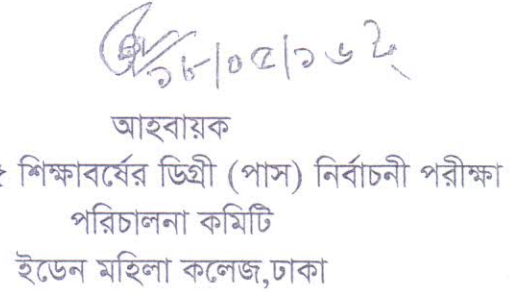 ১৮/০৫/১৬ ইং
আহবায়ক
শিক্ষাবর্ষের ডিগ্রী (পাস) নির্বাচনী পরীক্ষা
পরিচালনা কমিটি
ইডেন মহিলা কলেজ,ঢাকা